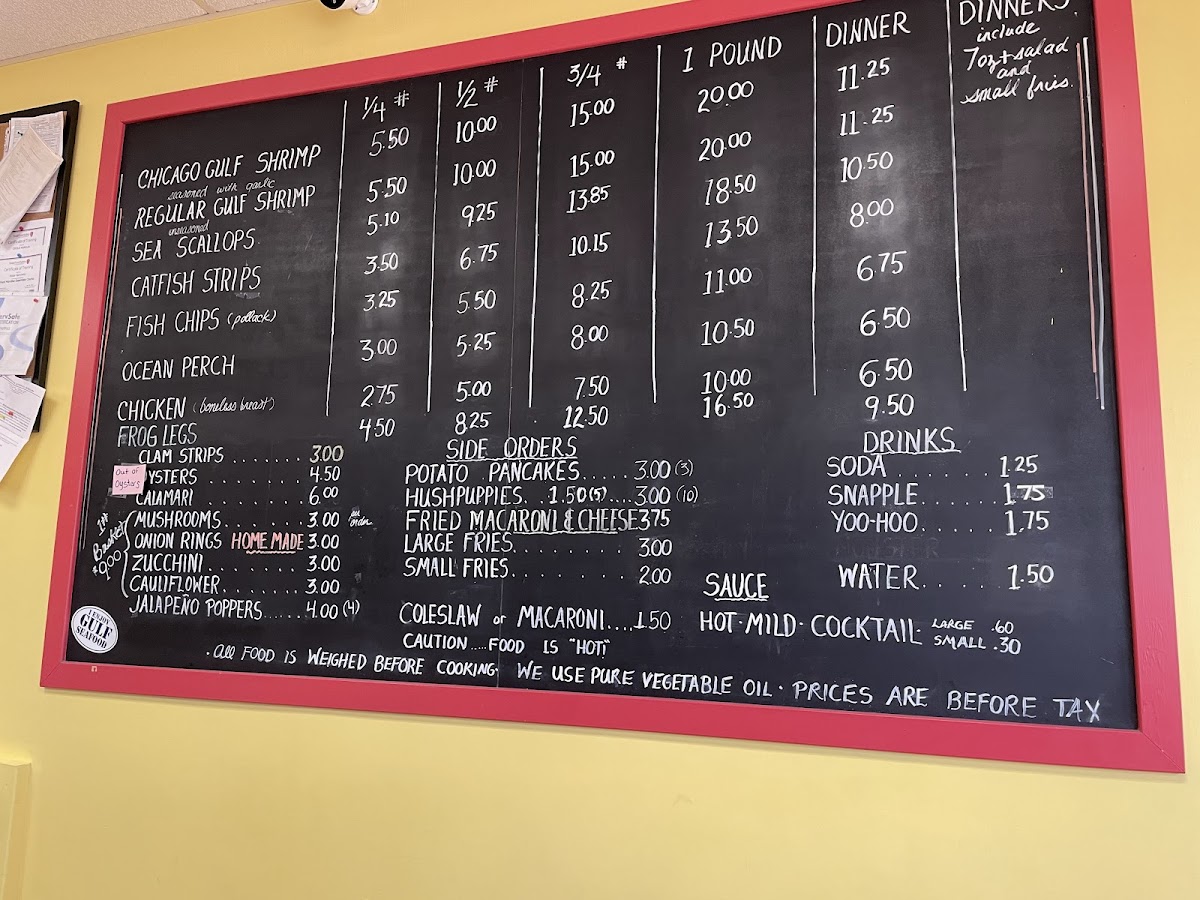 1/4 # 1/2 # 3/4 # 1 POUND DINNER
DINNERS
include
7oz + salad
and
small fries.
CHICAGO GULF SHRIMP 5.50 10.00 15.00 20.00 11.25
seasoned with garlic
REGULAR GULF SHRIMP 5.50 10.00 15.00 20.00 11.25
unseasoned
SEA SCALLOPS 5.10 9.25 13.85 18.50 10.50
CATFISH STRIPS 3.50 6.75 10.15 13.50 8.00
FISH CHIPS (pollack) 3.25 5.50 8.25 11.00 6.75
OCEAN PERCH 3.00 5.25 8.00 10.50 6.50
CHICKEN (boneless breast) 2.75 5.00 7.50 10.00 6.50
FROG LEGS 4.50 8.25 12.50 16.50 9.50
CLAM STRIPS ....... 3.00
Out of
Oysters
YSTERS ........ 4.50
CALAMARI 6.00
MUSHROOMS ....... 3.00 per order
ONION RINGS HOME MADE 3.00
ZUCCHINI ......... 3.00
CAULIFLOWER ....... 3.00
JALAPEÑO POPPERS ...... 4.00 (4)
1# Basket
9.00
SIDE ORDERS
POTATO PANCAKES ..... 3.00 (3)
HUSHPUPPIES. . 1.50 (5) .... 3.00 (10)
FRIED MACARONI & CHEESE 3.75
LARGE FRIES. . . . . . . . 3.00
SMALL FRIES. . . . . . . . 2.00
COLESLAW or MACARONI .... 1.50
CAUTION ..... FOOD IS "HOT!"
DRINKS
SODA ....... 1.25
SNAPPLE ..... 1.75
YOO-HOO ..... 1.75
WATER ..... 1.50
SAUCE
HOT · MILD · COCKTAIL · LARGE .60
SMALL .30
I ENJOY
GULF
SEAFOOD
· All FOOD IS WEIGHED BEFORE COOKING · WE USE PURE VEGETABLE OIL · PRICES ARE BEFORE TAX